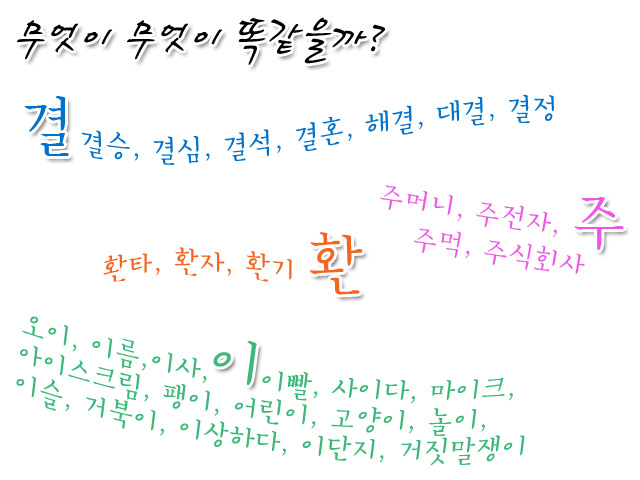 무엇이 무엇이 똑같을까?
결 결승, 결심, 결석, 결혼, 해결, 대결, 결정
주머니, 주전자, 주
주먹, 주식회사
환타, 환자, 환기 환
오이, 이름,이사, 이 이빨, 사이다, 마이크,
아이스크림, 팽이, 어린이, 고양이, 놀이,
이슬, 거북이, 이상하다, 이단지, 거짓말쟁이